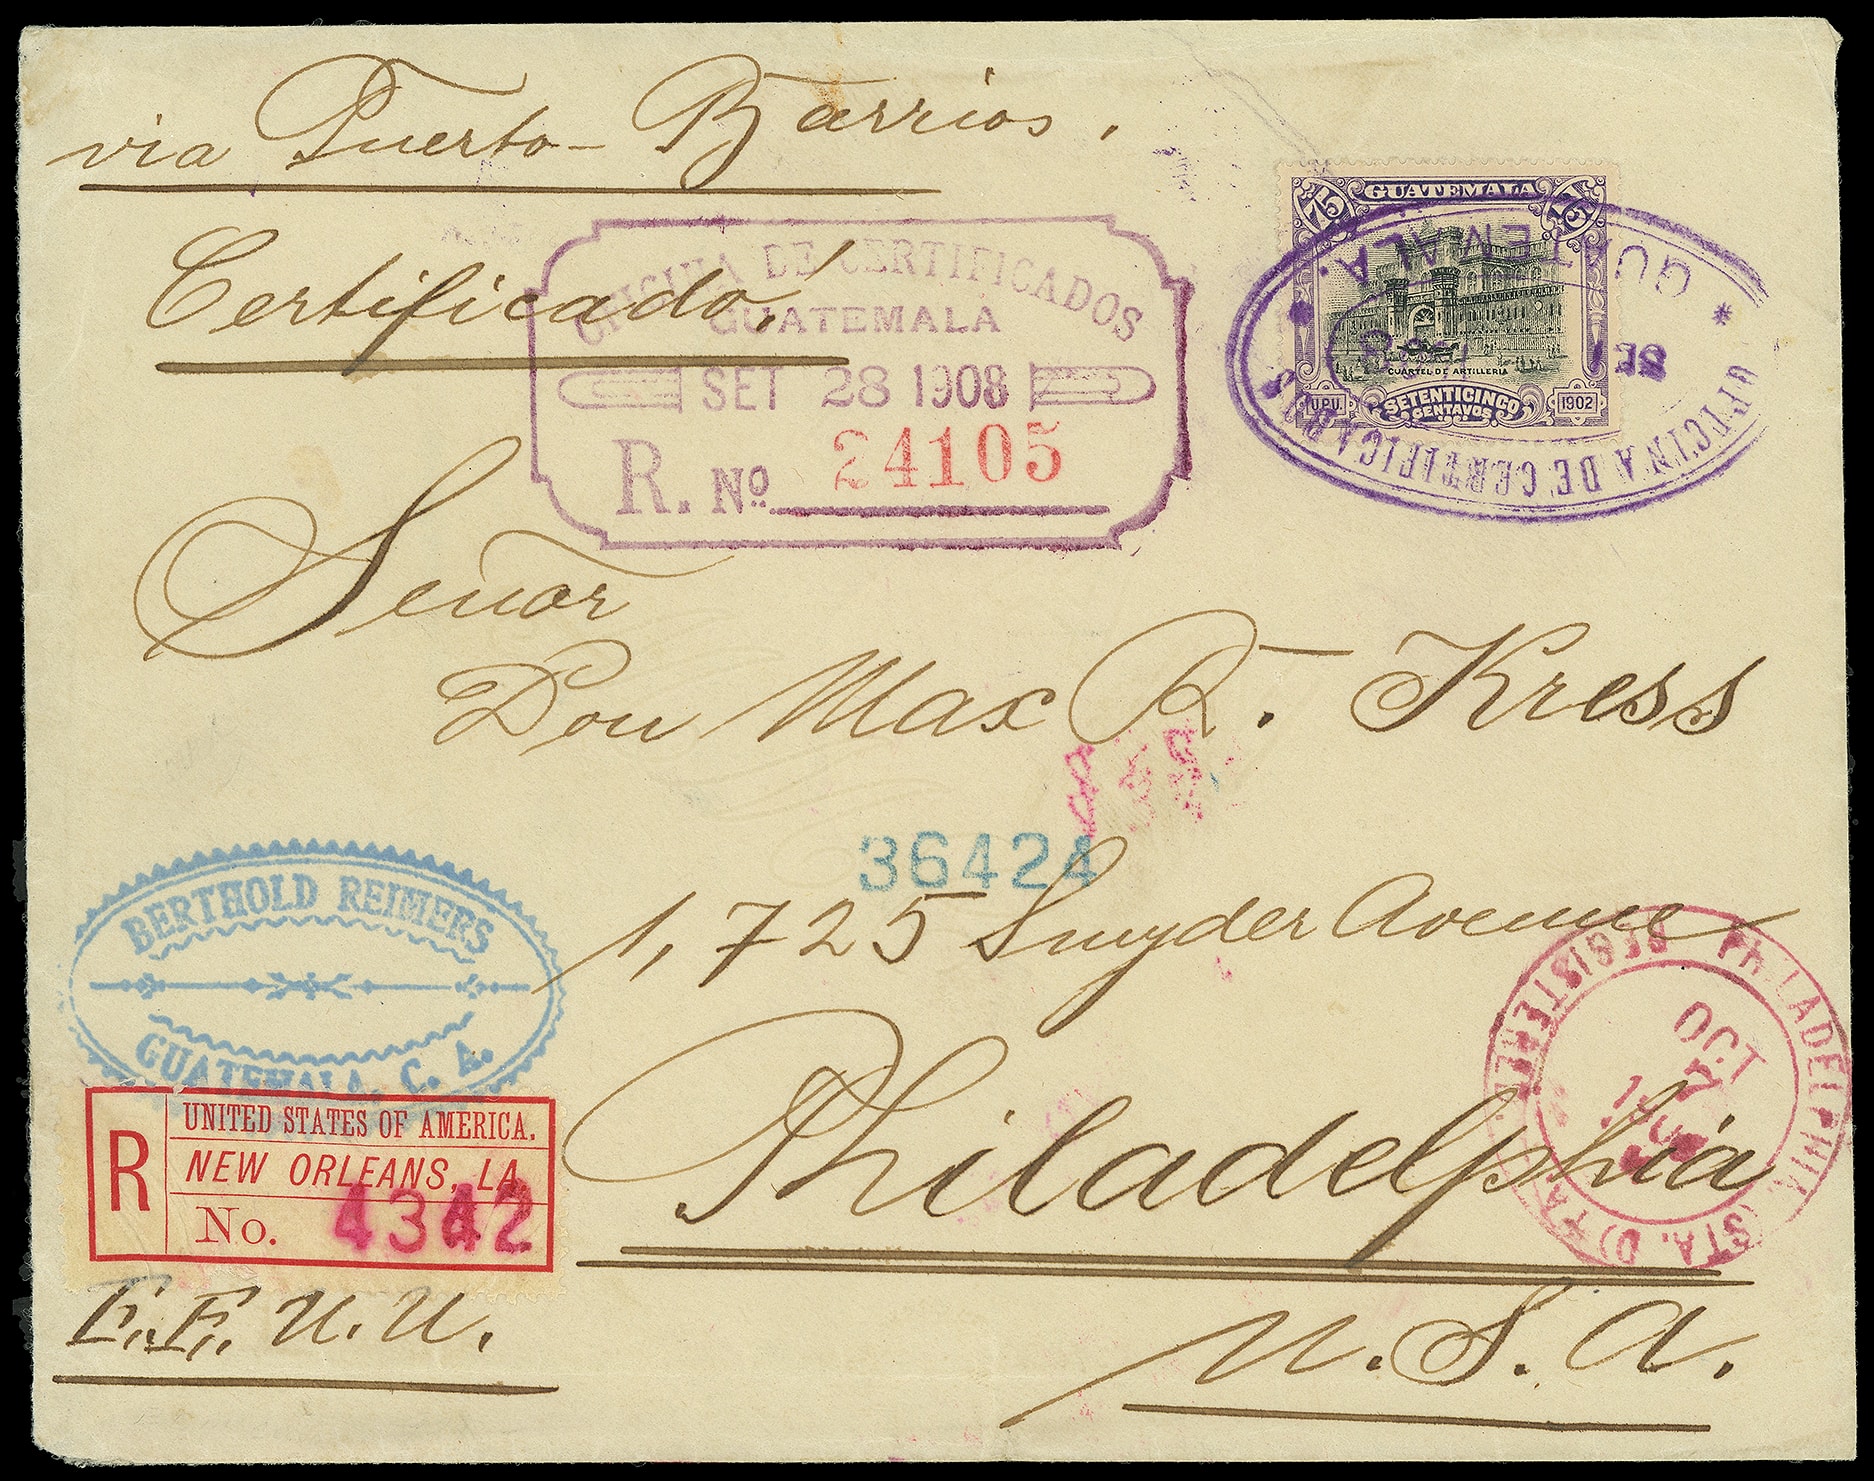 via Puerto-Barrios.
Certificado!
OFICINA DE CERTIFICADOS
GUATEMALA
SET 28 1908
R. No. 24105
75 GUATEMALA 75
CUARTEL DE ARTILLERIA
U.P.U. SETENTICINCO 1902
CENTAVOS
OFICINA DE CERTIFICADOS
GUATEMALA.
Señor
Don Max R. Kress
36424
1,725 Snyder Avenue
Philadelphia
U.S.A.
BERTHOLD REIMERS
GUATEMALA, C. A.
R
UNITED STATES OF AMERICA.
NEW ORLEANS, LA.
No. 4342
E.E. U.U.
REGISTERED PHILADELPHIA, PA. (STA. D)
OCT
7